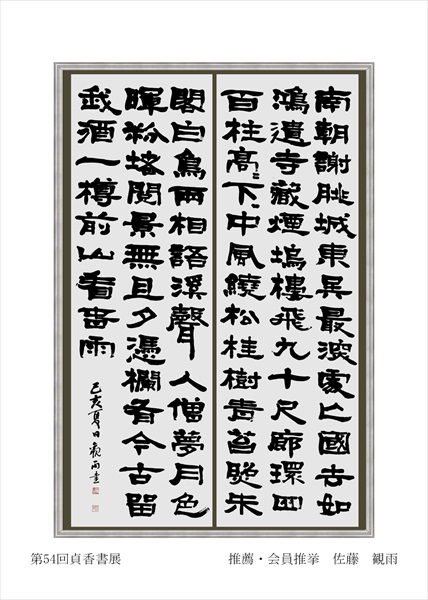 南朝謝朓城東吳最深處亡國去如
鴻遺寺藏煙塢樓飛九十尺廊環四
百柱高〻下〻中風繞松桂樹青苔照朱
閣白鳥兩相語溪聲入僧夢月色
暉粉堵閱景無旦夕憑欄有今古留
我酒一樽前山看春雨
己亥夏日觀雨書
第54回貞香書展
推薦・会員推挙　佐藤　観雨